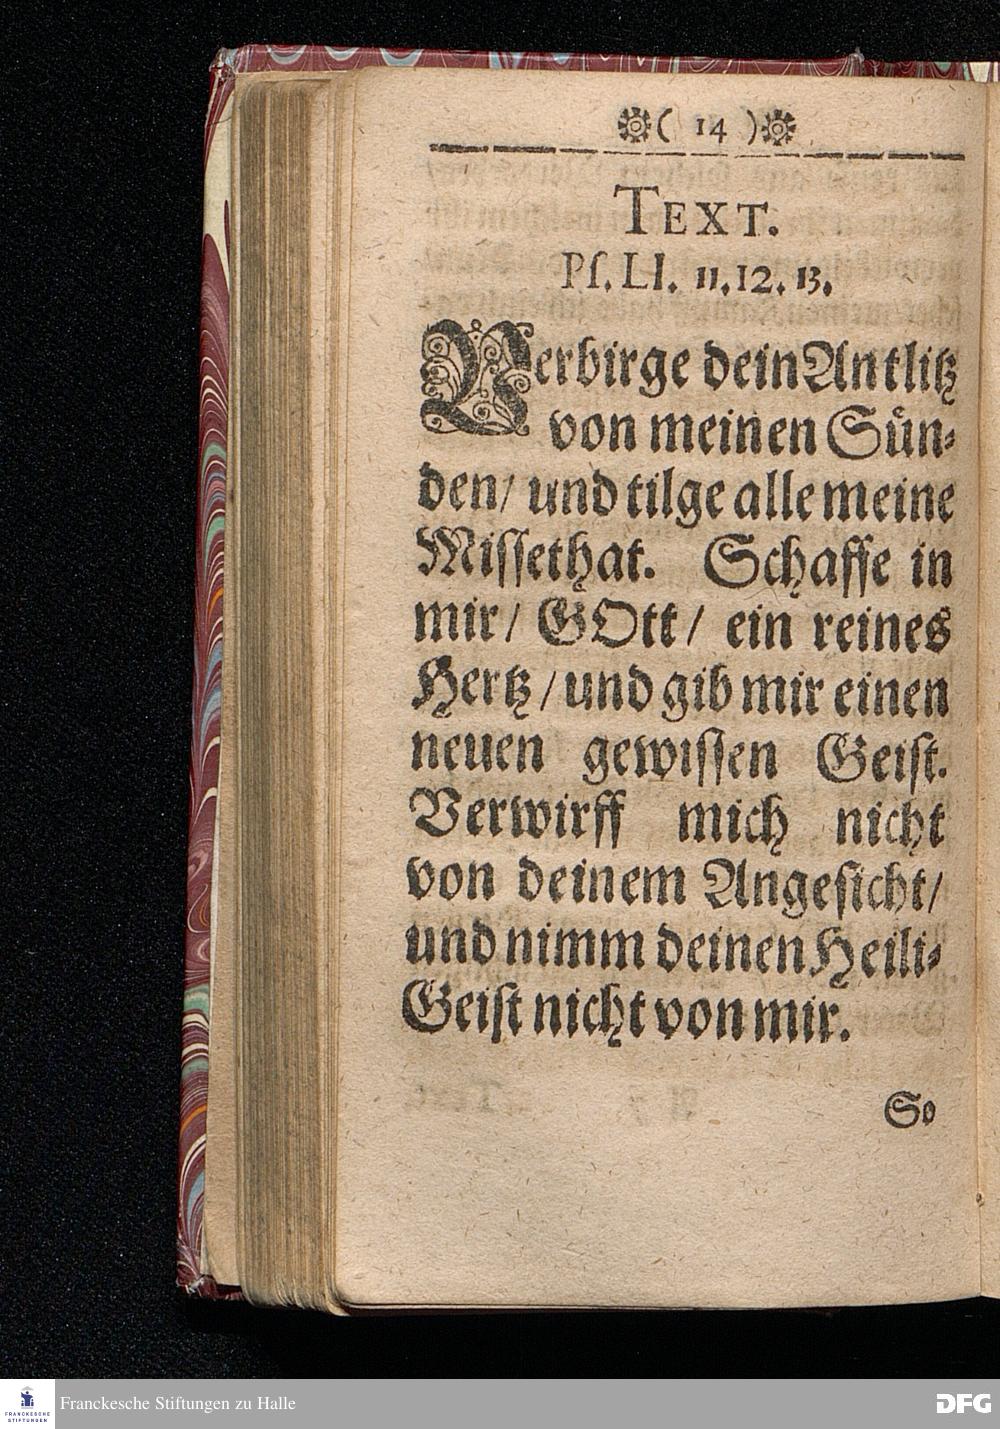 ( 14 )
TEXT.
Pſ. LI. 11. 12. 13.
Verbirge dein Antlitz
von meinen Sün⸗
den/ und tilge alle meine
Miſſethat. Schaffe in
mir/ GOtt/ ein reines
Hertz/ und gib mir einen
neuen gewiſſen Geiſt.
Verwirff mich nicht
von deinem Angeſicht/
und nimm deinen Heili⸗
Geiſt nicht von mir.
So
FRANCKESCHE
STIFTUNGEN
Franckesche Stiftungen zu Halle
DFG